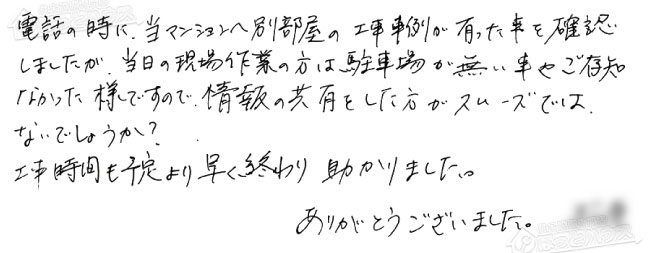 電話の時に、当マンションへ別部屋の工事事例が有った事を確認
しましたが、当日の現場作業の方は駐車場が無い事やご存知
なかった様ですので、情報の共有をした方がスムーズでは
ないでしょうか?
工事時間も予定より早く終わり助かりました。
ありがとうございました。